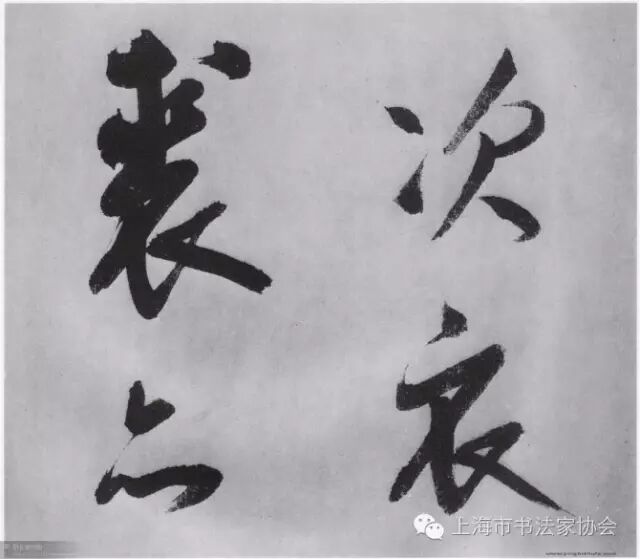 次衣
裘
上海市书法家协会